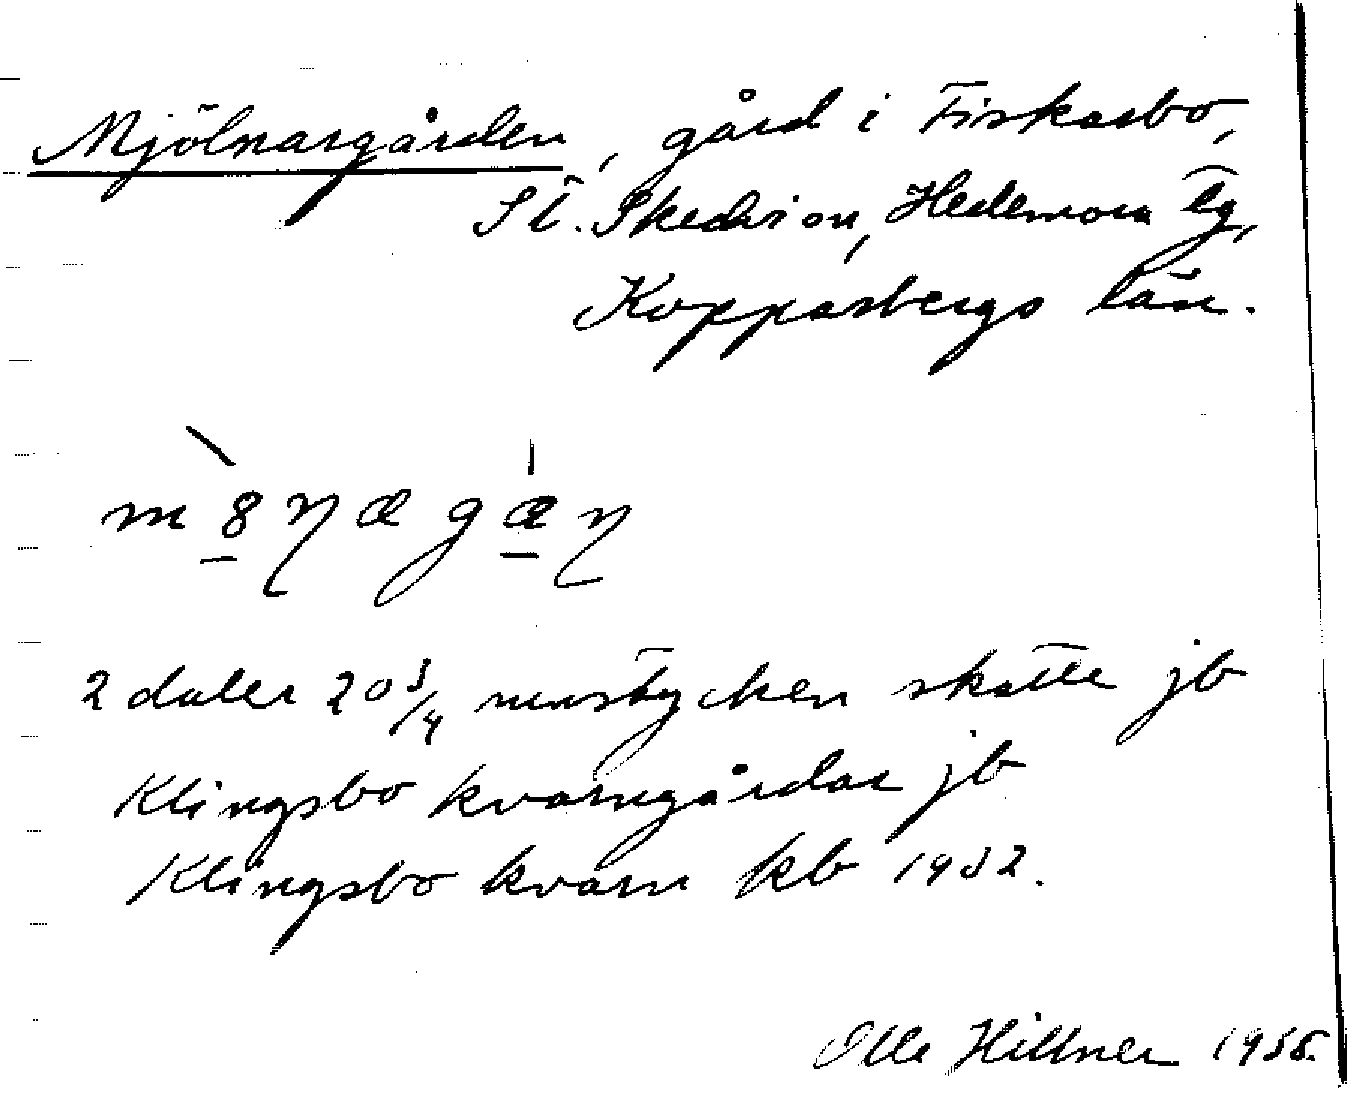 Mjölnargården, gård i Fiskarbo,
St. Skedvi sn, Hedemora tg,
Kopparbergs län.
2 daler 20 3/4 runstycken skatte jb
Klingsbo kvarngårdar jb
Klingsbo kvarn kb 1932.
Olle Hillner 1955.